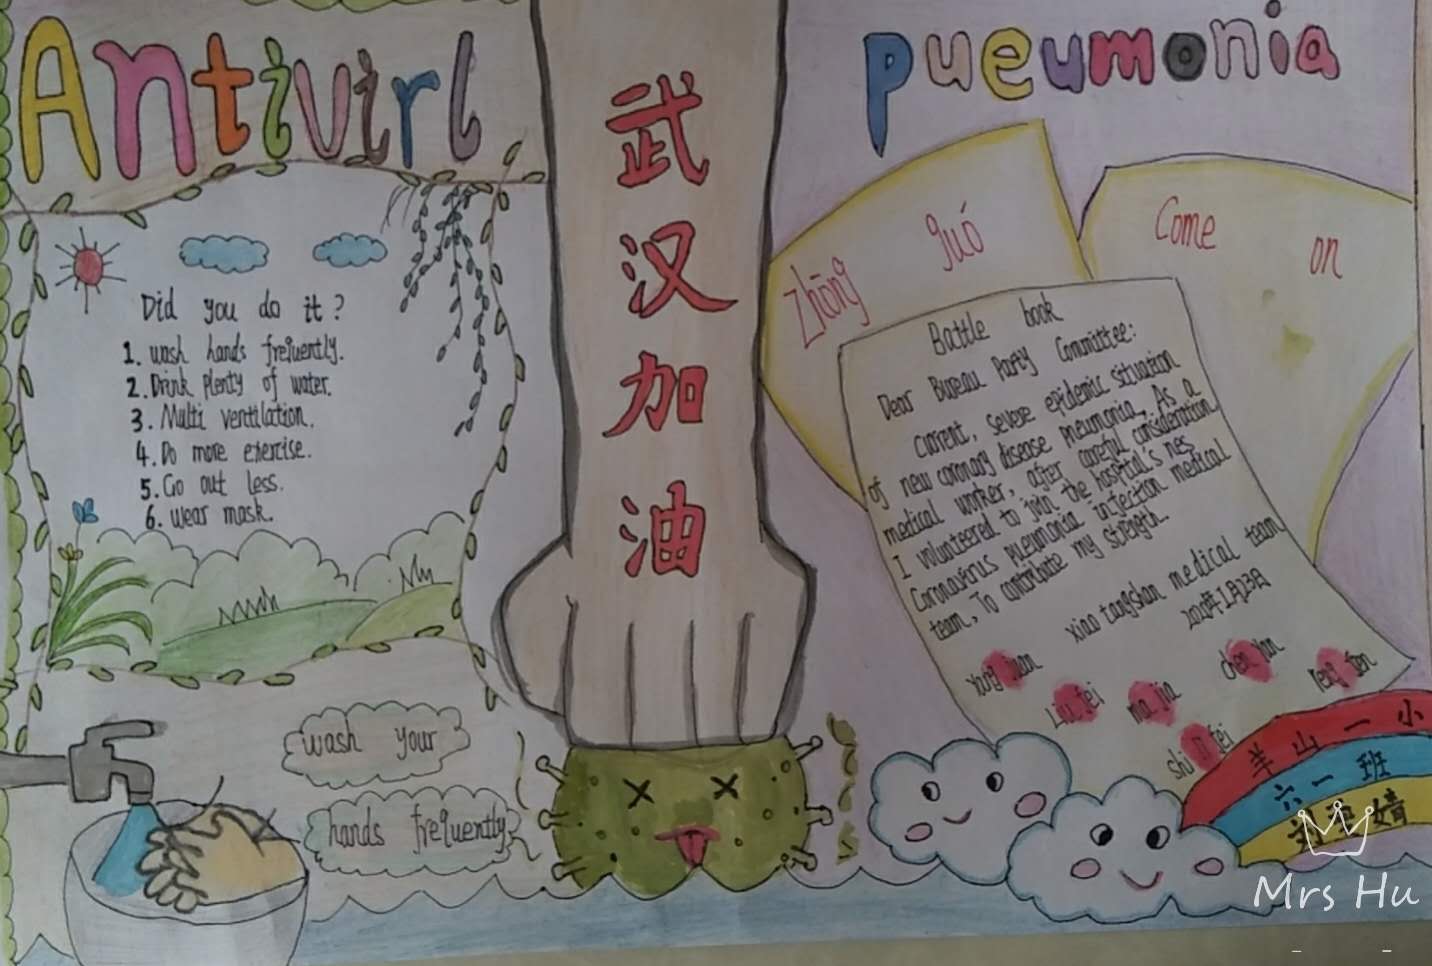 Antivirl
pueumonia
武
汉
加
油
Zhōng guó
Come on
Did you do it?
1. wash hands frequently.
2. Drink plenty of water.
3. Multi ventilation.
4. Do more exercise.
5. Go out less.
6. wear mask.
wash your
hands frequently
Battle book
Dear Bureau Party Committee:
Current, severe epidemic situation
of new coronary disease pneumonia, As a
medical worker, after careful consideration
I volunteered to join the hospital's nes
Coronavirus pneumonia injection medical
team, To contribute my strength.
xiao tangshan medical team
2020年1月23日
Liu fei
ma jia
羊山一小
六一班
婧
Mrs Hu